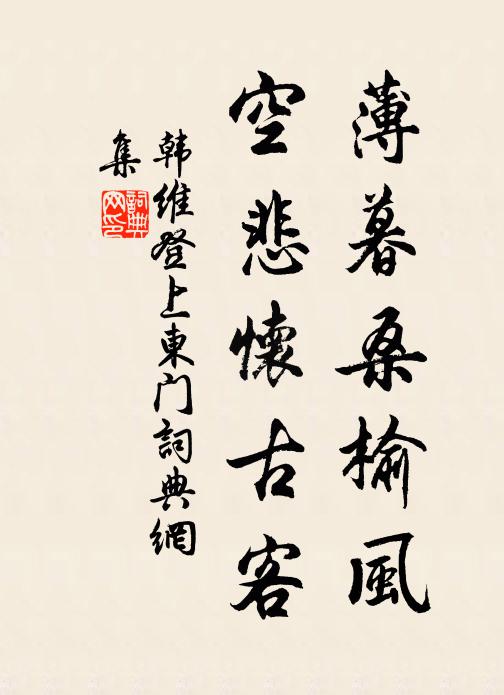 薄暮桑榆風
空悲懷古客
韩維登上東门詞典網
集
詞典
网印